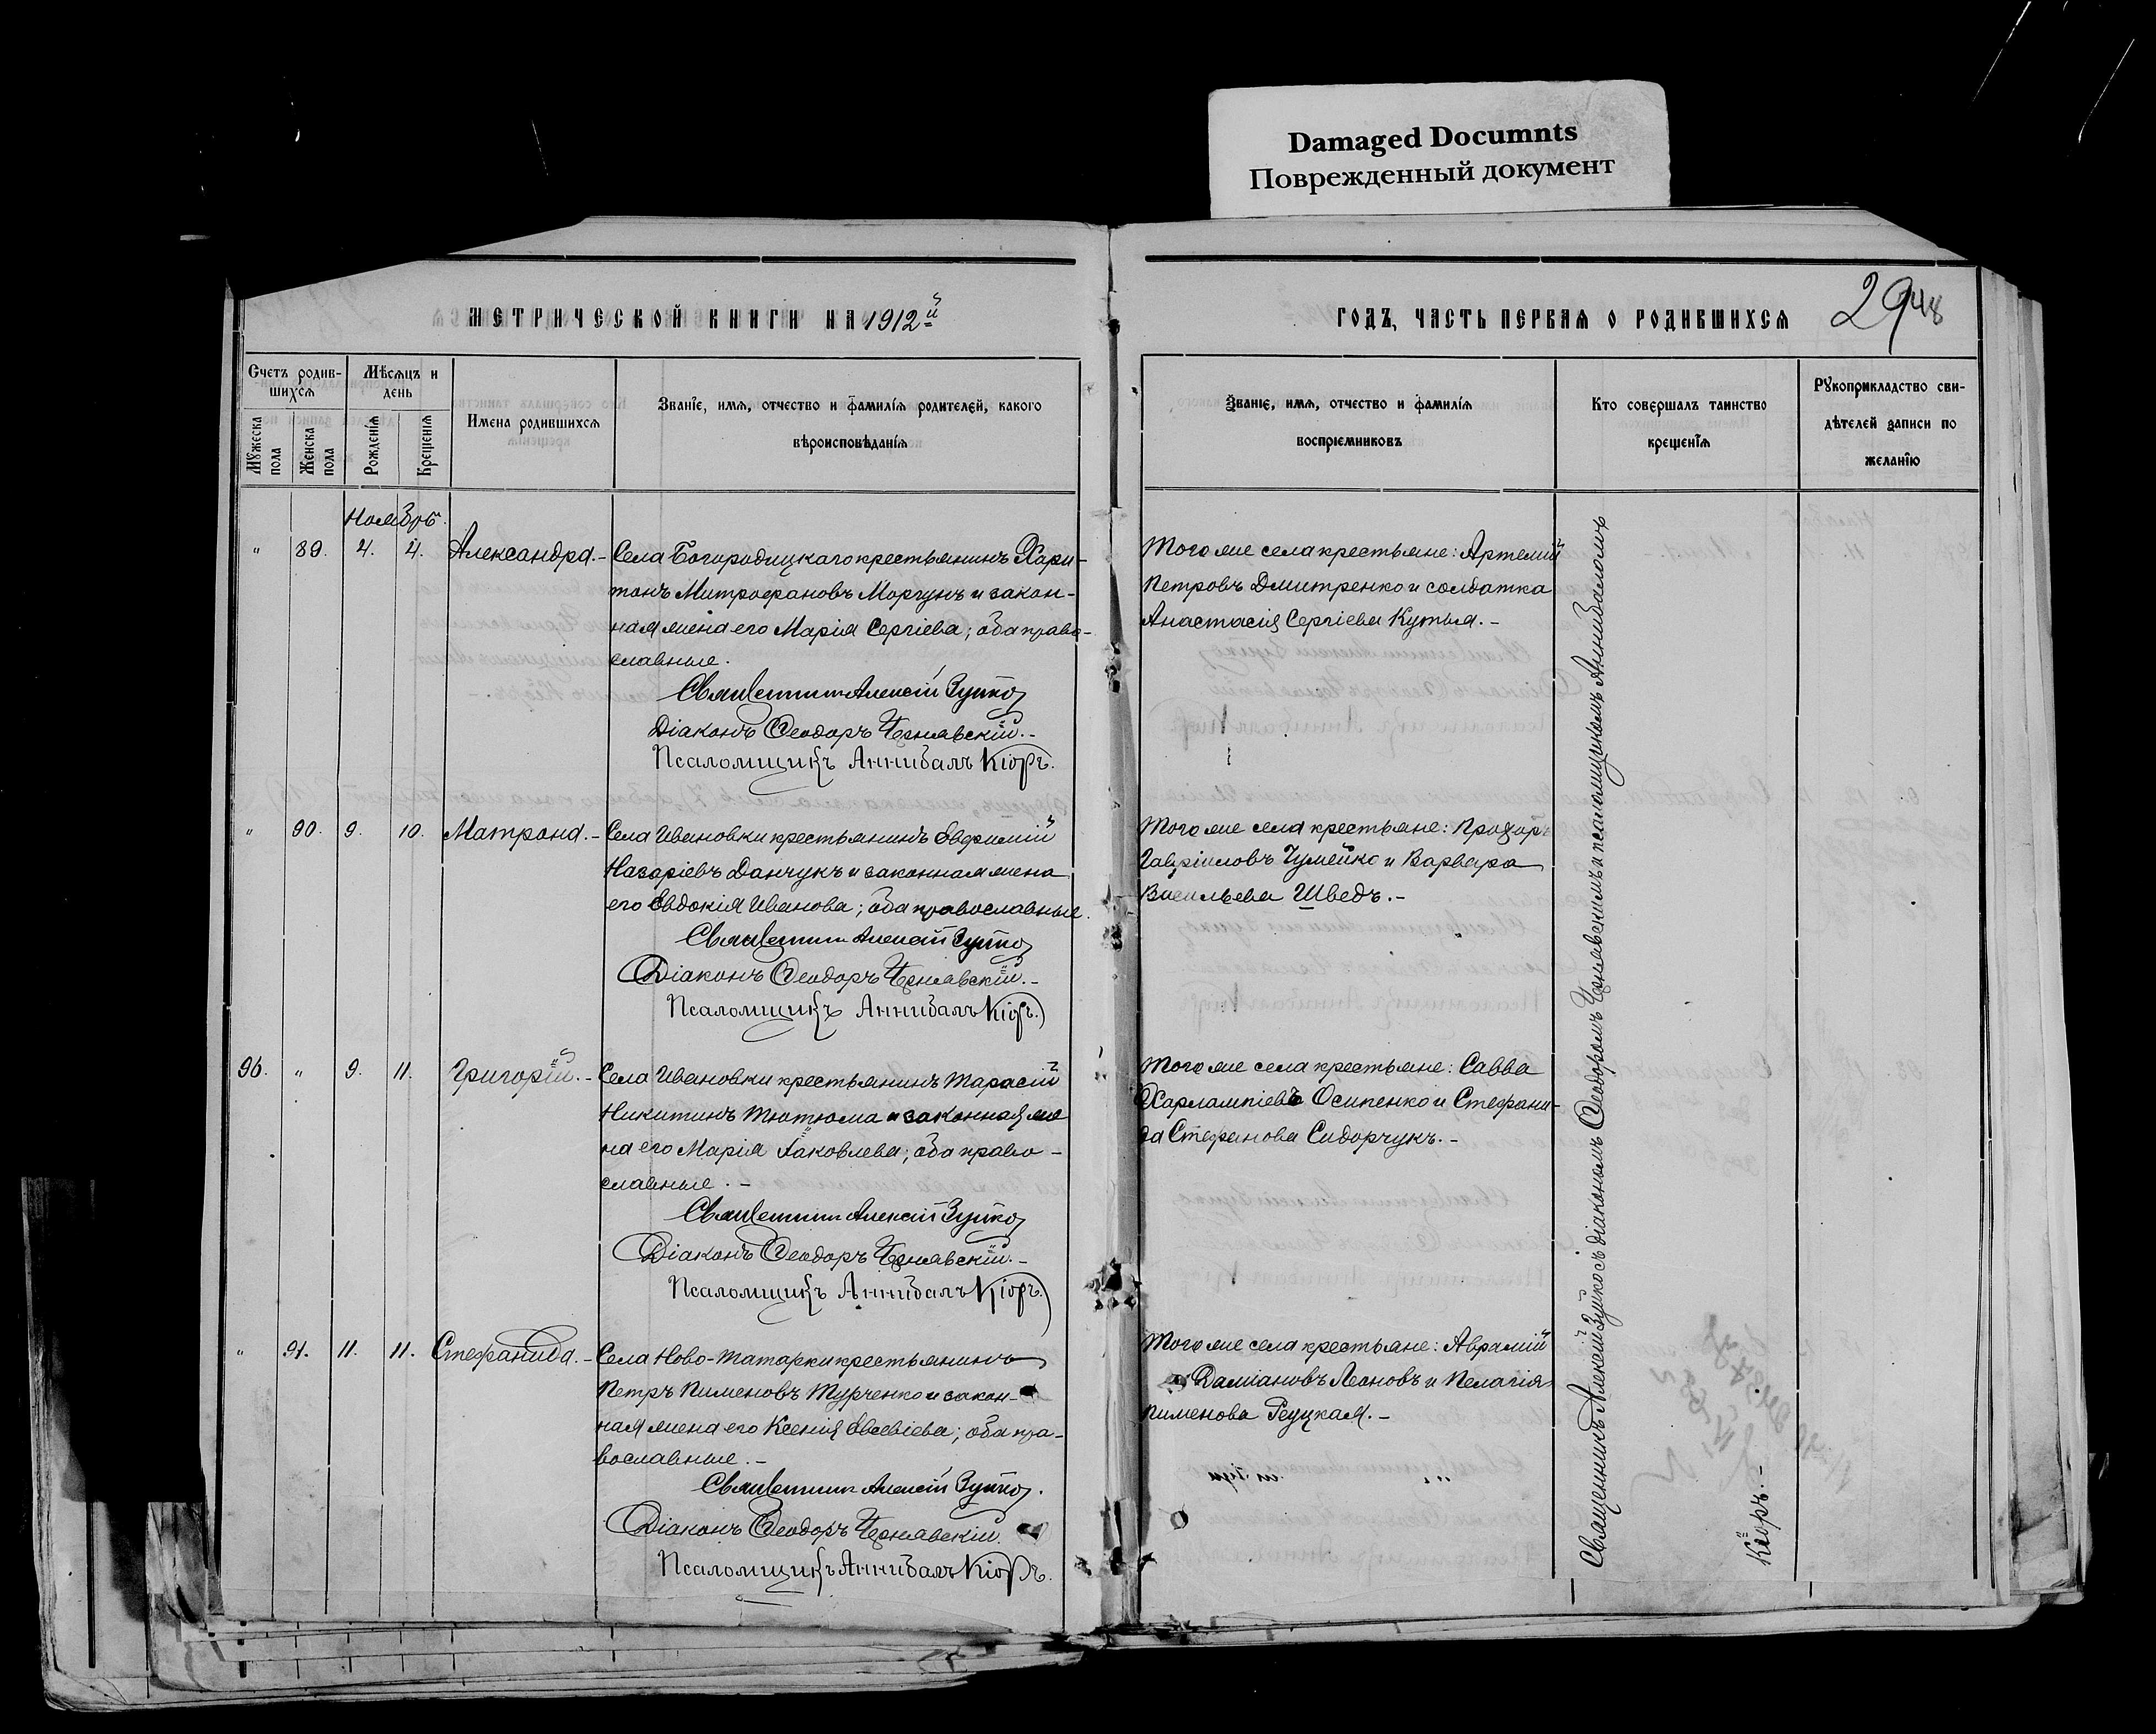 Damaged Documnts
Поврежденный документ
МЕТРИЧЕСКОЙ КНИГИ НА 1912й
ГОДЪ, ЧАСТЬ ПЕРВАЯ О РОДИВШИХСЯ
29
48
Счетъ родив-
шихся
Мужеска пола
Женска пола
Мѣсяцъ и
день
Рожденія
Крещенія
Имена родившихся
Званіе, имя, отчество и фамилія родителей, какого
вѣроисповѣданія
Званіе, имя, отчество и фамилія
воспріемниковъ
Кто совершалъ таинство
крещенія
Рукоприкладство сви-
дѣтелей записи по
желанію
Ноябрь.
" 89. 4. 4. Александра. - Села Богородицкаго крестьянинъ Хари-
тонъ Митрофановъ Моргунъ и закон-
ная жена его Марія Сергіева; оба право-
славные.
Священникъ Алексій Зушко
Діаконъ Ѳеодоръ Чернявскій. -
Псаломщикъ Аннибалъ Кіоръ.
Того же села крестьяне: Артемій
Петровъ Дмитренко и солдатка
Анастасія Сергіева Кутья. -
" 90. 9. 10. Матрона. - Села Ивановки крестьянинъ Евфимій
Назаріевъ Данчукъ и законная жена
его Евдокія Иванова; оба православные.
Священникъ Алексій Зушко
Діаконъ Ѳеодоръ Чернявскій. -
Псаломщикъ Аннибалъ Кіоръ.
Того же села крестьяне: Прохоръ
Гавріиловъ Чумейко и Варвара
Васильева Шведъ. -
96. " 9. 11. Григорій. - Села Ивановки крестьянинъ Тарасій
Никитинъ Тютюма и законная же
на его Марія Іаковлева; оба право-
славные. -
Священникъ Алексій Зушко
Діаконъ Ѳеодоръ Чернявскій. -
Псаломщикъ Аннибалъ Кіоръ.
Того же села крестьяне: Савва
Харлампіевъ Осипенко и Стефани-
да Стефанова Сидорчукъ. -
" 91. 11. 11. Стефанида. - Села Ново-Татарки крестьянинъ
Петръ Пименовъ Турченко и закон-
ная жена его Ксенія Евсевіева; оба пра-
вославные. -
Священникъ Алексій Зушко.
Діаконъ Ѳеодоръ Чернявскій.
Псаломщикъ Аннибалъ Кіоръ.
Того же села крестьяне: Аврамій
Даміановъ Леоновъ и Пелагія
Пименова Рецкая. -
Священникъ Алексій Зушко съ діакономъ Ѳеодоромъ Чернявскимъ и псаломщикомъ Аннибаломъ
Кіоръ. -